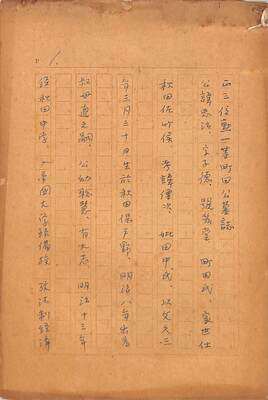 1.
正三位勲一等町田公墓誌
公諱忠治、字子徳、號幾堂、町田氏、家世仕
秋田佐竹侯、考諱傳次、妣田中氏、以文久三
年三月三十日生於秋田保戸野、明治八年出為
叔母直之嗣、公幼聡慧、有大志、明治十三年
経秋田中学、入帝国大学予備校、攻法制経済